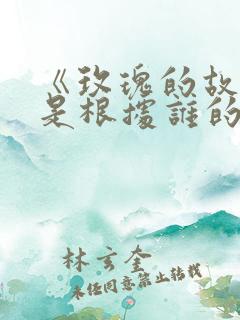 《玫瑰的故
是根據誰的
林玄奎
未经同意禁止转载